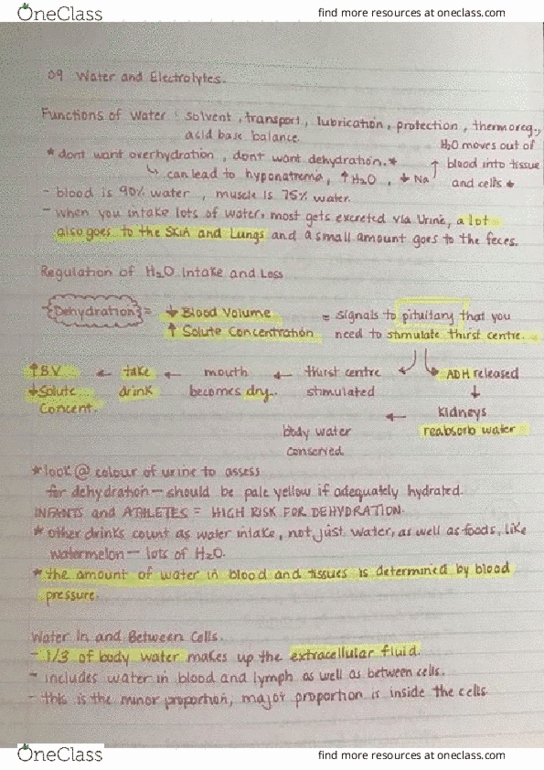 OneClass
find more resources at oneclass.com
09 Water and Electrolytes.
Functions of water : solvent, transport, lubrication, protection, thermoreg,
acid base balance.
H2O moves out of
* dont want overhydration, dont want dehydration. * ↑ blood into tissue
↳ can lead to hyponatrema, ↑ H2O, ↓ Na and cells *
- blood is 90% water, muscle is 75% water.
- when you intake lots of water, most gets excreted via Urine, a lot
also goes to the SKIN and Lungs and a small amount goes to the feces.
Regulation of H2O Intake and Loss
Dehydration = ↓ Blood Volume = signals to pituitary that you
↑ Solute Concentration need to stimulate thirst centre.
↑ BV ← take ← mouth ← thirst centre ADH released
↓ Solute drink becomes dry. stimulated ↓
Concent. ← kidneys
body water reabsorb water
conserved
* look @ colour of urine to assess
for dehydration - should be pale yellow if adequately hydrated.
INFANTS and ATHLETES = HIGH RISK FOR DEHYDRATION.
* other drinks count as water intake, not just water, as well as foods, like
watermelon - lots of H2O.
* the amount of water in blood and tissues is determined by blood
pressure.
Water In and Between Cells.
- 1/3 of body water makes up the extracellular fluid.
- includes water in blood and lymph as well as between cells.
- this is the minor proportion, major proportion is inside the cells
OneClass
find more resources at oneclass.com